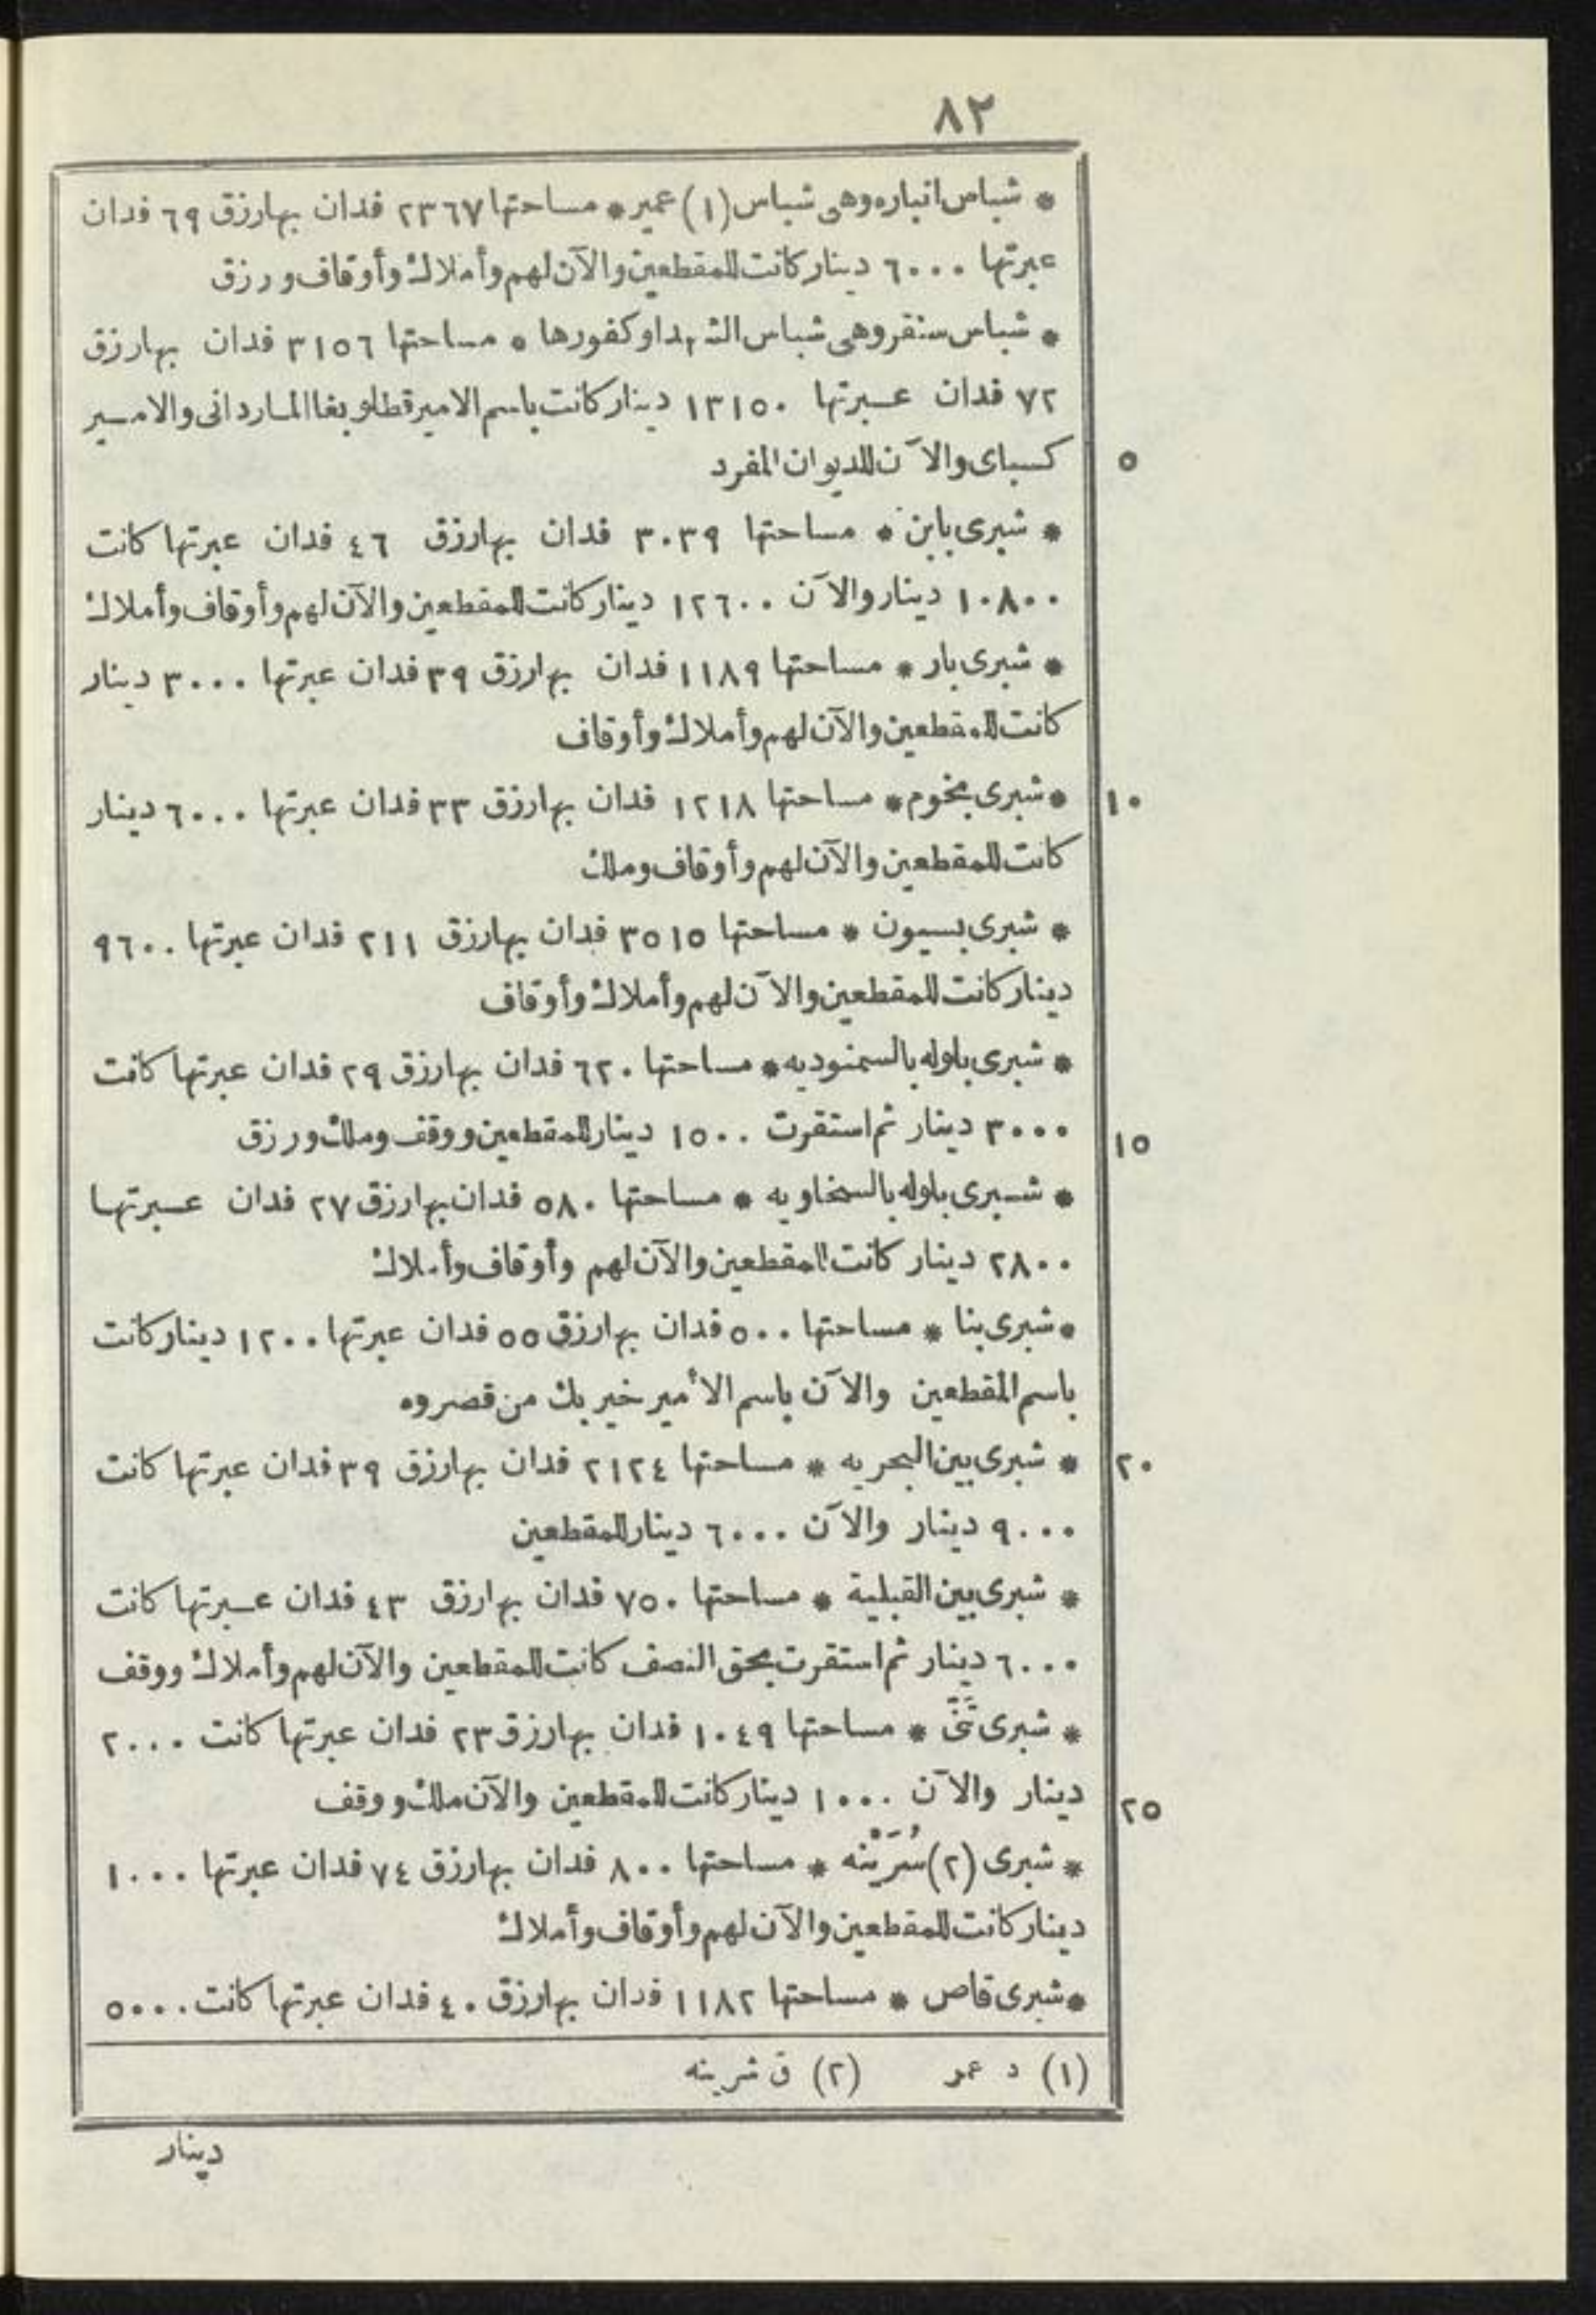 ٨٢
* شباس انباره وهى شباس (١) عمير * مساحتها ٢٣٦٧ فدان بها رزق ٦٩ فدان
عبرتها ٦٠٠٠ دينار كانت للمقطعين والآن لهم وأملاك وأوقاف ورزق
* شباس سنقر وهى شباس الشهدا وكفورها * مساحتها ٣١٥٦ فدان بها رزق
٧٢ فدان عبرتها ١٣١٥٠ دينار كانت باسم الامير قطلوبغا الماردانى والامير
٥ كسباى والآن للديوان المفرد
* شبرى بابن * مساحتها ٣٠٣٩ فدان بها رزق ٤٦ فدان عبرتها كانت
١٠٨٠٠ دينار والآن ١٢٦٠٠ دينار كانت للمقطعين والآن لهم وأوقاف وأملاك
* شبرى بار * مساحتها ١١٨٩ فدان بها رزق ٣٩ فدان عبرتها ٣٠٠٠ دينار
كانت للمقطعين والآن لهم وأملاك وأوقاف
١٠ * شبرى بخوم * مساحتها ١٢١٨ فدان بها رزق ٣٣ فدان عبرتها ٦٠٠٠ دينار
كانت للمقطعين والآن لهم وأوقاف وملك
* شبرى بسيون * مساحتها ٣٥١٥ فدان بها رزق ٢١١ فدان عبرتها ٩٦٠٠
دينار كانت للمقطعين والآن لهم وأملاك وأوقاف
* شبرى بلوله بالسمنوديه * مساحتها ٦٢٠ فدان بها رزق ٢٩ فدان عبرتها كانت
١٥ ٣٠٠٠ دينار ثم استقرت ١٥٠٠ دينار للمقطعين ووقف وملك ورزق
* شبرى بلوله بالسخاويه * مساحتها ٥٨٠ فدان بها رزق ٢٧ فدان عبرتها
٢٨٠٠ دينار كانت للمقطعين والآن لهم وأوقاف وأملاك
* شبرى بنا * مساحتها ٥٠٠ فدان بها رزق ٥٥ فدان عبرتها ١٢٠٠ دينار كانت
باسم المقطعين والآن باسم الأمير خير بك من قصروه
٢٠ * شبرى بين البحريه * مساحتها ٢١٢٤ فدان بها رزق ٣٩ فدان عبرتها كانت
٩٠٠٠ دينار والآن ٦٠٠٠ دينار للمقطعين
* شبرى بين القبلية * مساحتها ٧٥٠ فدان بها رزق ٤٣ فدان عبرتها كانت
٦٠٠٠ دينار ثم استقرت بحق النصف كانت للمقطعين والآن لهم وأملاك ووقف
* شبرى * مساحتها ١٠٤٩ فدان بها رزق ٢٣ فدان عبرتها كانت ٢٠٠٠
٢٥ دينار والآن ١٠٠٠ دينار كانت للمقطعين والآن ملك ووقف
* شبرى (٢) سُرَيْنه * مساحتها ٨٠٠ فدان بها رزق ٧٤ فدان عبرتها ١٠٠٠
دينار كانت للمقطعين والآن لهم وأوقاف وأملاك
* شبرى قاص * مساحتها ١١٨٢ فدان بها رزق ٤٠ فدان عبرتها كانت ٥٠٠٠
(١) د عمر (٢) ق شرينه
دينار